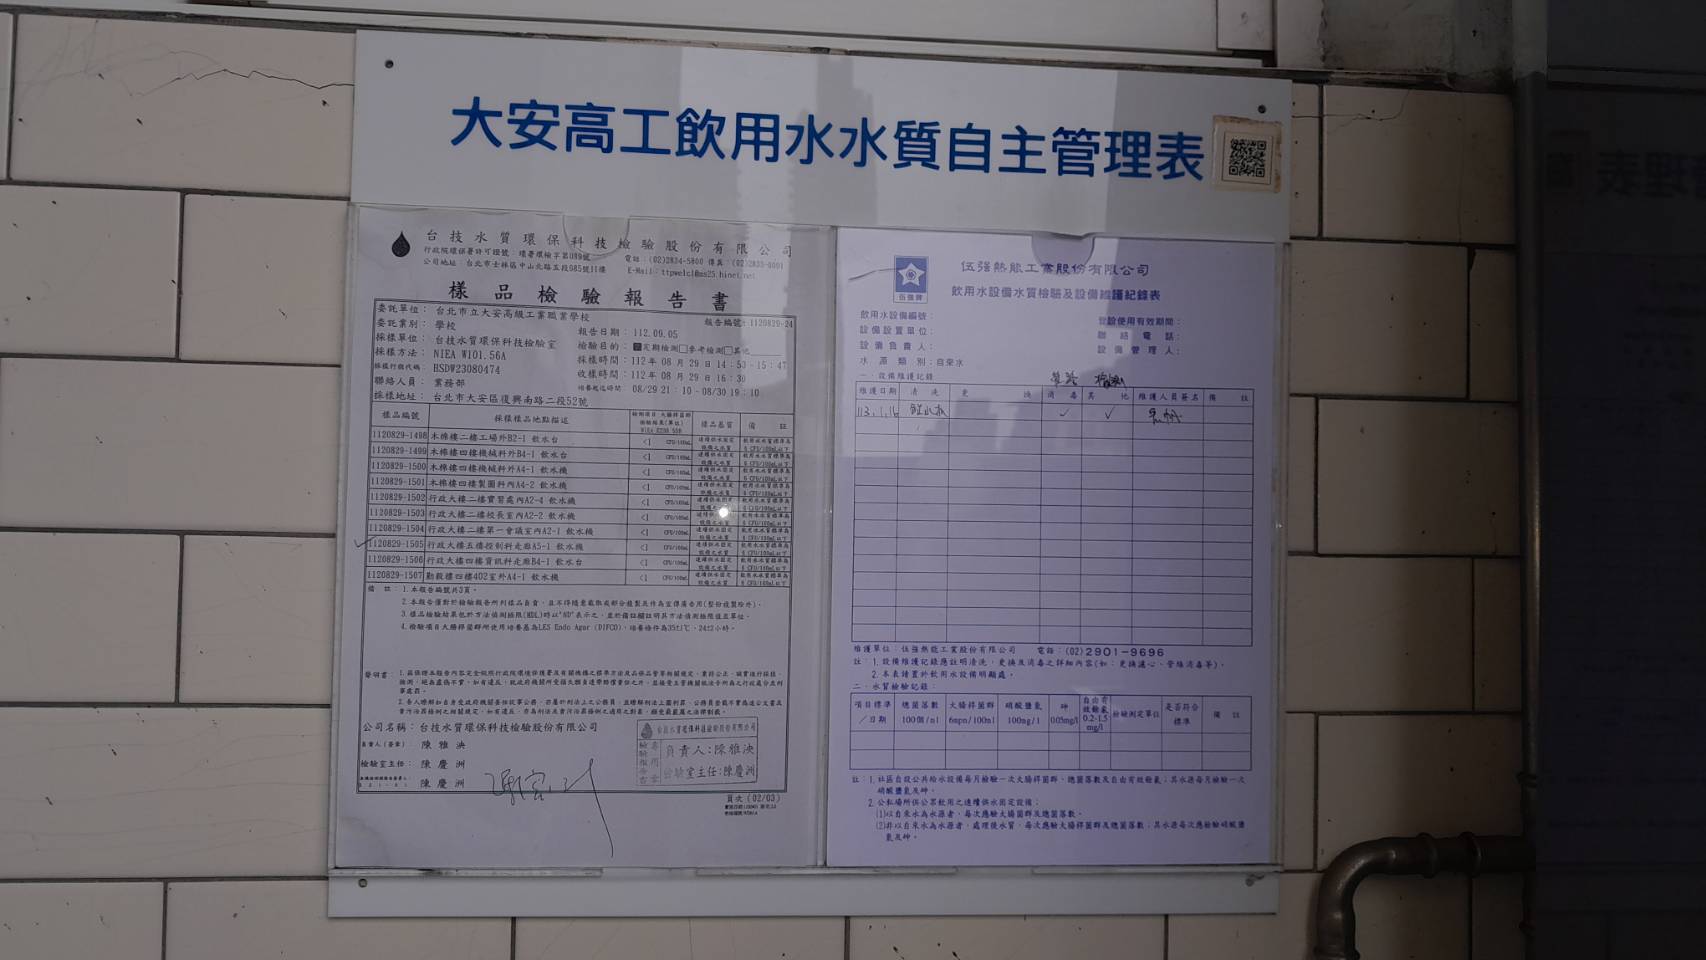 大安高工飲用水水質自主管理表
台技水質環保科技檢驗股份有限公司
行政院環保署許可證號：環署環檢字第089號
電話：(02)2834-5800 傳真：(02)2835-
公司地址：台北市士林區中山北路五段685號11樓
樣品檢驗報告書
委託單位：台北市立大安高級工業職業學校
報告編號：1120829-24
委託業別：學校
報告日期：112.09.05
採樣單位：台技水質環保科技檢驗室
檢驗目的：定期檢測 參考檢測 其他
採樣方法：NIEA W101.56A
採樣時間：112年08月29日14:53-15:47
採樣行程代碼：HSDW23080474
收樣時間：112年08月29日16:30
聯絡人員：業務部
培養起迄時間 08/29 21:10-08/30 19:10
採樣地址：台北市大安區復興南路二段52號
樣品編號 採樣樣品地點描述 樣品基質 備註
1120829-1498 木棉樓二樓工場外B2-1 飲水台 <1 CFU/100mL
1120829-1499 木棉樓四樓機械科外B4-1 飲水台 <1 CFU/100mL
1120829-1500 木棉樓四樓機械科外A4-1 飲水機 <1 CFU/100mL
1120829-1501 木棉樓四樓製圖科內A4-2 飲水機 <1 CFU/100mL
1120829-1502 行政大樓二樓實習處內A2-4 飲水機 <1 CFU/100mL
1120829-1503 行政大樓二樓校長室內A2-2 飲水機 <1 CFU/100mL
1120829-1504 行政大樓二樓第一會議室內A2-1 飲水機 <1 CFU/100mL
1120829-1505 行政大樓五樓控制科走廊A5-1 飲水機 <1 CFU/100mL
1120829-1506 行政大樓四樓資訊科走廊B4-1 飲水台 <1 CFU/100mL
1120829-1507 勤毅樓四樓402室外A4-1 飲水機 <1 CFU/100mL
備註：1.本報告編號共3頁。
2.本報告僅對於檢驗報告所列樣品負責，且不得隨意截取或部分複製及作為宣傳廣告用(整份複製除外)。
3.樣品檢驗結果低於方法偵測極限(MDL)時以"ND"表示之，並於備註欄註明其方法偵測極限值且單位。
4.檢驗項目大腸桿菌群所使用培養基為LES Endo Agar (DIFCO)，培養條件為35±1℃、24±2小時。
聲明書：
公司名稱：台技水質環保科技檢驗股份有限公司
負責人(簽章)： 陳雅泱
檢驗室主任： 陳慶洲
陳慶洲
台技水質環保科技檢驗股份有限公司
檢驗報告專用章
負責人：陳雅泱
檢驗室主任：陳慶洲
頁次(02/03)
伍強牌
伍強熱能工業股份有限公司
飲用水設備水質檢驗及設備維護紀錄表
飲用水設備編號：
登記使用有效期間：
設備設置單位：
聯絡電話：
設備負責人：
設備管理人：
水源類別：自來水
一、設備維護記錄
維護日期 清洗 更換 消毒 其他 維護人員簽名 備註
113.1.16 ✓ ✓
維護單位：伍強熱能工業股份有限公司 電話：(02)2901-9696
註：1.設備維護記錄應註明清洗、更換及消毒之詳細內容(如：更換濾心、管線消毒等)。
2.本表請置於飲用水設備明顯處。
二、水質檢驗記錄：
項目標準／日期 總菌落數100個/ml 大腸桿菌群6mpn/100ml 硝酸鹽氮100mg/l 砷0.05mg/l 自由有效餘氯0.2-1.5mg/l 檢驗測定單位 是否符合標準 備註
註：1.社區自設公共給水設備每月檢驗一次大腸桿菌群、總菌落數及自由有效餘氯；其水源每月檢驗一次
硝酸鹽氮及砷。
2.公私場所供公眾飲用之連續供水固定設備；
(1)以自來水為水源者，每次應驗大腸桿菌群及總菌落數。
(2)非以自來水為水源者，處理後水質，每次應驗大腸桿菌群及總菌落數；其水源每次應檢驗硝酸鹽
氮及砷。